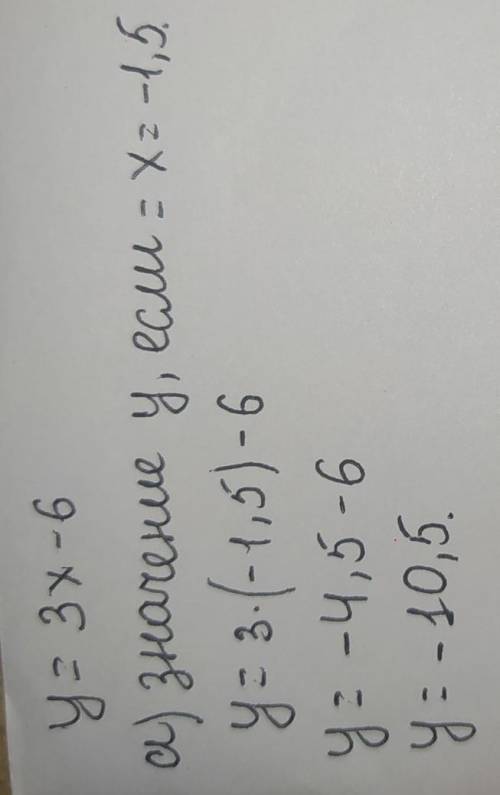 y = 3x - 6
а) значение y, если = x = -1,5.
y = 3·(-1,5) - 6
y = -4,5 - 6
y = -10,5.